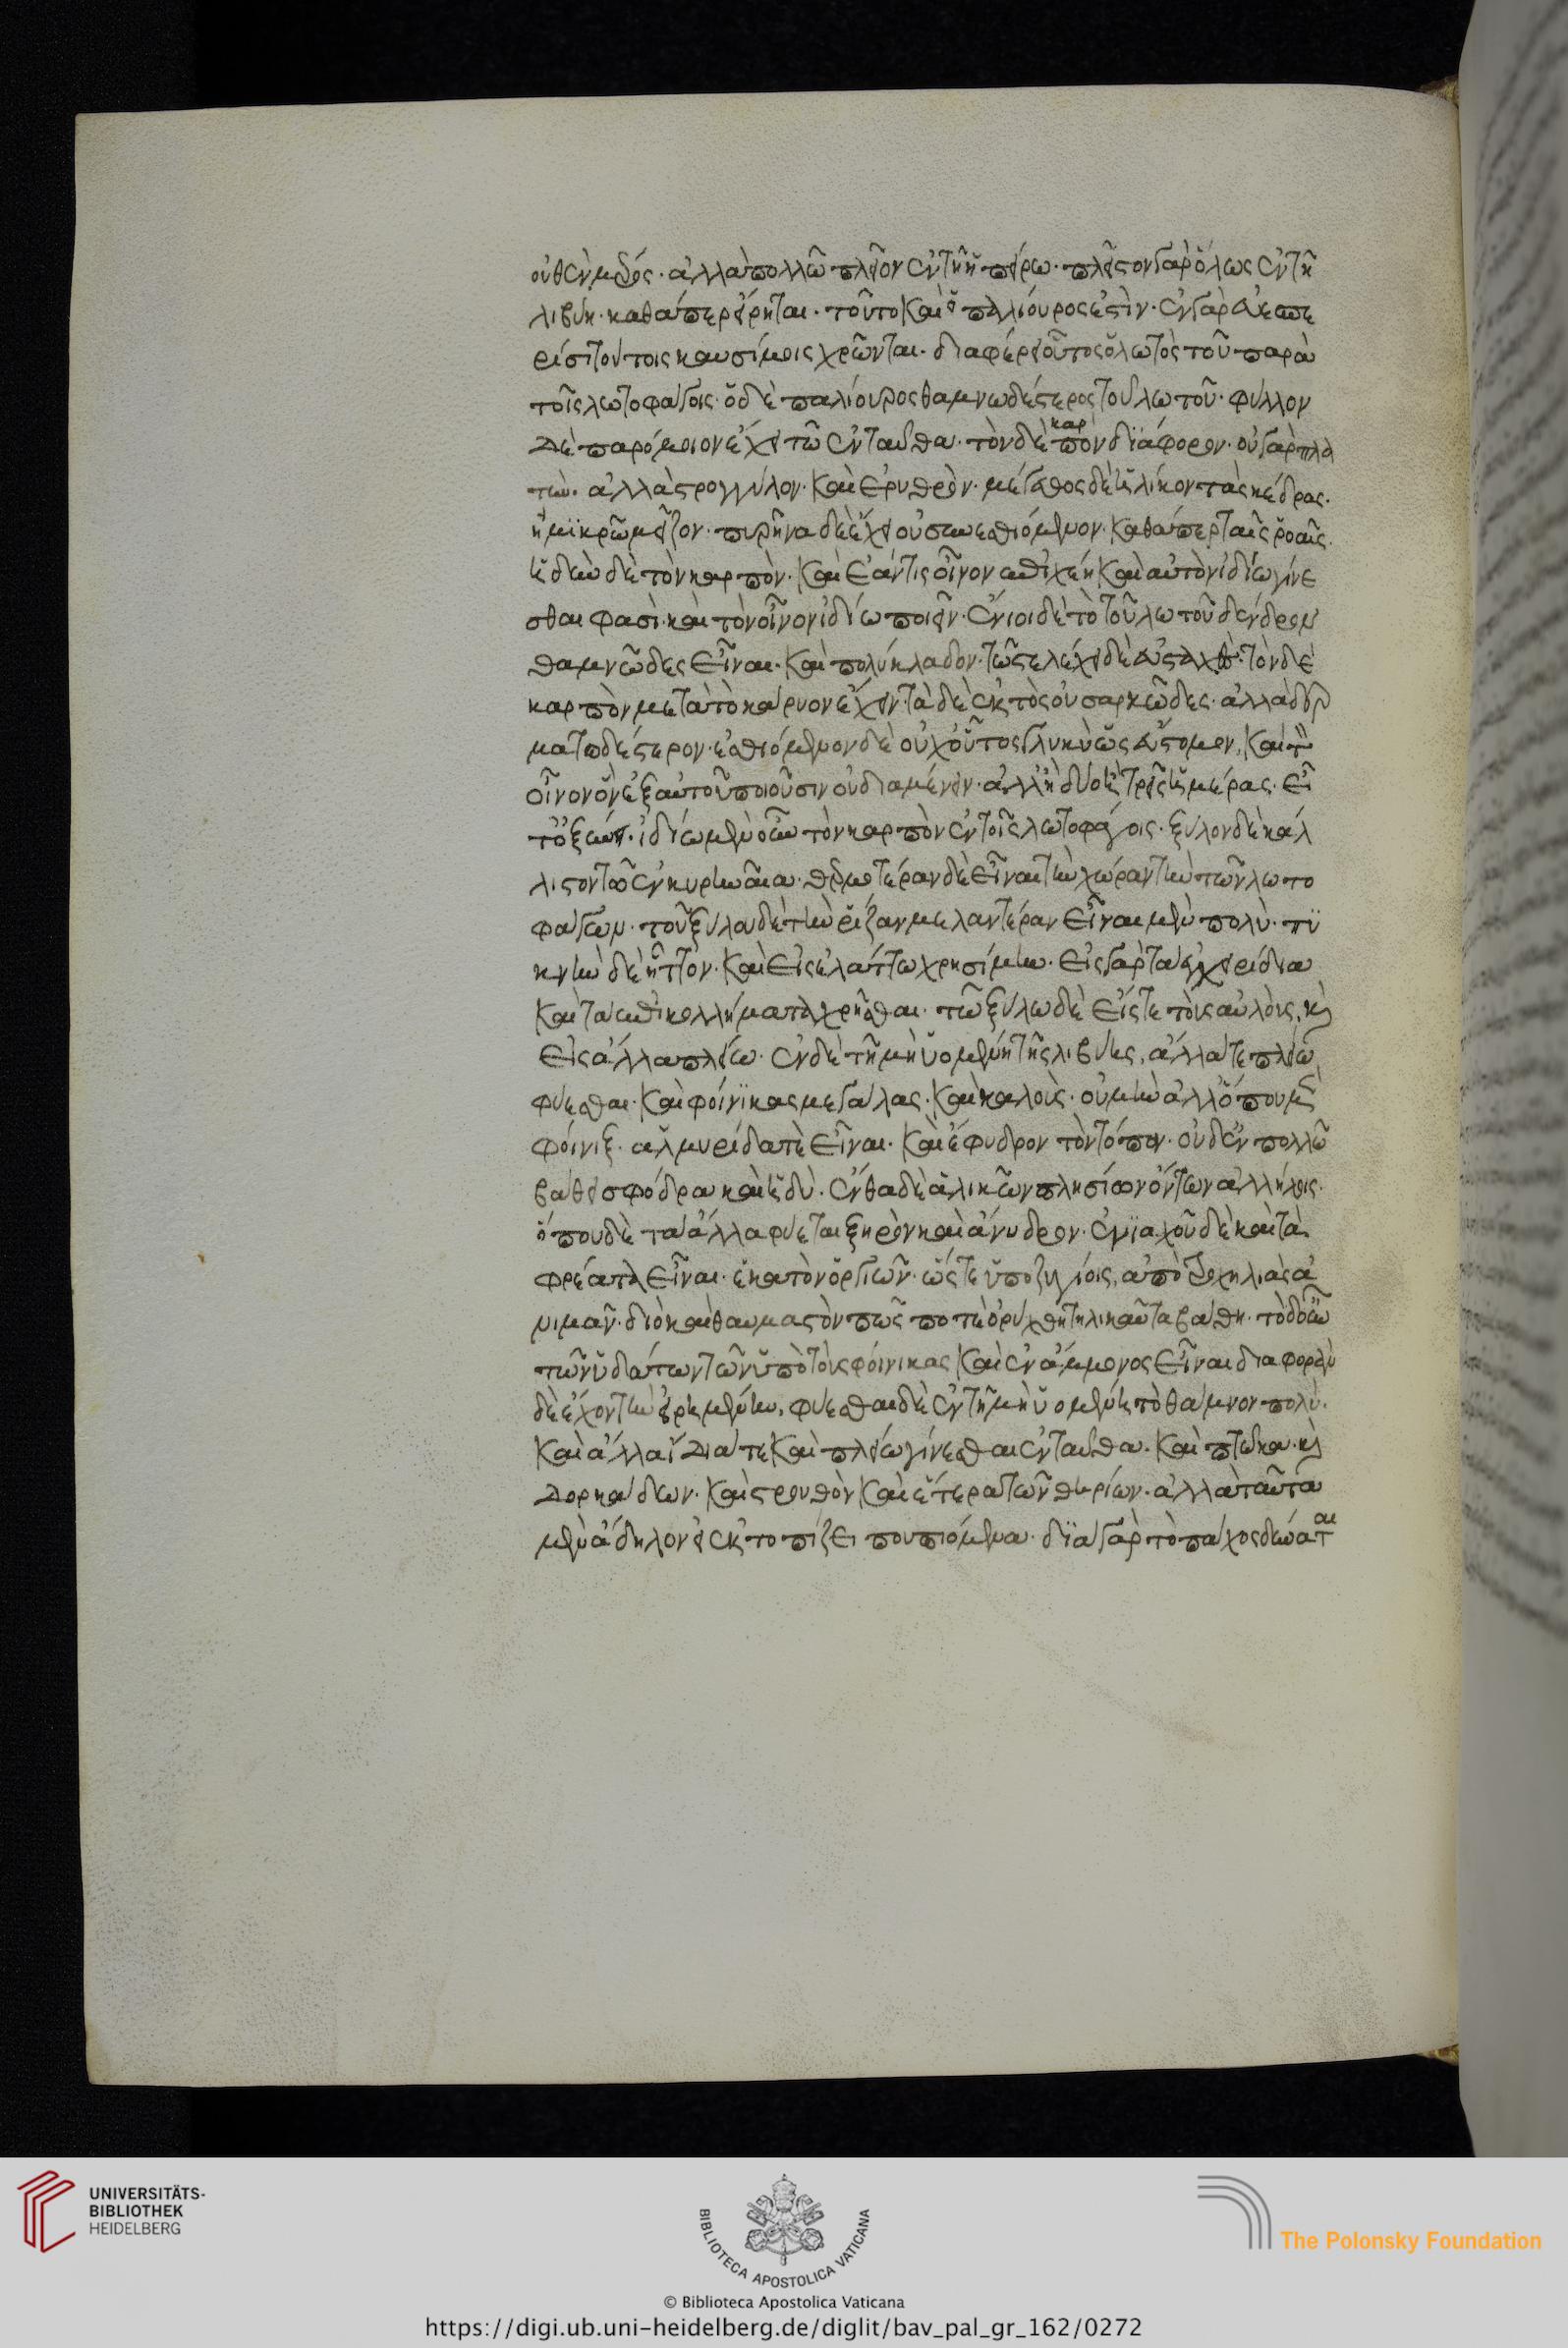 οὐθὲν μέρος· ἀλλὰ πολλῶ πλεῖον ἐν τῆ ἠπείρω· πλεῖστον γὰρ ὅλως ἐν τῆ
λιβύη· καθάπερ εἴρηται· τοῦτο καὶ ὁ παλίουρος ἐστὶν· ἐν γὰρ εὐεσπε
ρίσι τούτοις καυσίμοις χρῶνται· διαφέρει οὗτος ὁ λωτὸς τοῦ παρὰ
τοῖς λωτοφάγοις· ὁ δὲ παλίουρος θαμνωδέστερος τοῦ λωτοῦ· φύλλον
δὲ παρόμοιον ἔχει τῶ ἐνταῦθα· τὸν δὲ καρπὸν διάφορον· οὐ γὰρ πλα
τὺν· ἀλλὰ στρογγύλον· καὶ ἐρυθρὸν· μέγεθος δὲ ἡλίκον τὰς κέδρας·
ἢ μικρῶ μεῖζον· πυρῆνα δὲ ἔχει οὐ συνεσθιόμενον· καθάπερ ταῖς ῥοαῖς·
ἡδὺν δὲ τὸν καρπὸν· καὶ ἐάν τις οἶνον ἐπιχέη καὶ αὐτὸν ἡδίω γίνε
σθαι φασὶ· καὶ τὸν οἶνον ἡδίω ποιεῖν· ἔνιοι δὲ τὸ τοῦ λωτοῦ δένδρον
θαμνῶδες εἶναι· καὶ πολύκλαδον· τῶ στελέχει δὲ εὐπαχὲς· τὸν δὲ
καρπὸν μετὰ τὸ κάρυον ἔχειν· τὰ δὲ ἐκτὸς οὐ σαρκῶδες· ἀλλὰ δερ
ματωδέστερον· ἐσθιόμενον δὲ οὐχ οὕτος γλυκὺ ὡς εὔστομον, καὶ τὸν
οἶνον ὃν ἐξ αὐτοῦ ποιοῦσιν οὐ διαμένειν· ἀλλ' ἢ δύο ἢ τρεῖς ἡμέρας· εἶ
τ' ὀξύνειν· ἡδίω μὲν οὖν τὸν καρπὸν ἐν τοῖς λωτοφάγοις· ξύλον δὲ κάλ
λιστον τὸ ἐν κυρηναία· θερμοτέραν δὲ εἶναι τὴν χώραν τὴν τῶν λωτο
φάγων· τοῦ ξύλου δὲ τὴν ῥίζαν μελαντέραν εἶναι μὲν πολὺ· πυ
κνὴν δὲ ἧττον· καὶ εἰς ἐλάττω χρησίμην· εἰς γὰρ τὰ ἐγχειρίδια
καὶ τὰ ἐπικολλήματα χρῆσθαι· τῶ ξύλω δὲ εἴς τε τοὺς αὐλοὺς, καὶ
εἰς ἄλλα πλείω· ἐν δὲ τῆ μὴ ὑομένη τῆς λιβύης, ἄλλα τε πλείω
φύεσθαι· καὶ φοίνικας μεγάλας· καὶ καλοὺς· οὐ μὴν ἀλλ' ὅπου μὲν
φοίνιξ· ἁλμυρίδα τὲ εἶναι· καὶ ἔφυδρον τὸν τόπον· οὐδ' ἐν πολλῶ
βάθει σφόδρα καὶ ἡδὺ· ἔνθα δὲ ἁλικῶν πλησίον ὄντων ἀλλήλοις·
ὅπου δὲ τὰ ἄλλα φύεται ξηρὸν καὶ ἄνυδρον· ἐνιαχοῦ δὲ καὶ τὰ
φρέατα εἶναι· ἑκατὸν ὀργιῶν· ὥστε ὑποζυγίοις, ἀπὸ τροχηλιὰς ἀ
νιμᾶν· διὸ καὶ θαυμαστὸν πῶς ποτὲ ὀρύχθη τηλικαῦτα βάθη· τὸ δ' οὖν
τῶν ὑδάτων τῶν ὑπὸ τοὺς φοίνικας καὶ ἐν ἄμμονος εἶναι διαφορὰν
δὲ ἔχον τὴν εἰρημένην, φύεσθαι δὲ ἐν τῆ μὴ ὑομένη τὸ θάμνον πολὺ·
καὶ ἄλλα ἴδια τε καὶ πλείω γίνεσθαι ἐνταῦθα· καὶ πτῶκα· καὶ
δορκάδων· καὶ στρουθὸν καὶ ἕτερα τῶν θηρίων· ἀλλὰ ταῦτα
μὲν ἄδηλον εἰ ἐκτοπίζει που πιόμενα· διὰ γὰρ τὸ πάχος δύναται
UNIVERSITÄTS-
BIBLIOTHEK
HEIDELBERG
BIBLIOTECA APOSTOLICA VATICANA
The Polonsky Foundation
© Biblioteca Apostolica Vaticana
https://digi.ub.uni-heidelberg.de/diglit/bav_pal_gr_162/0272